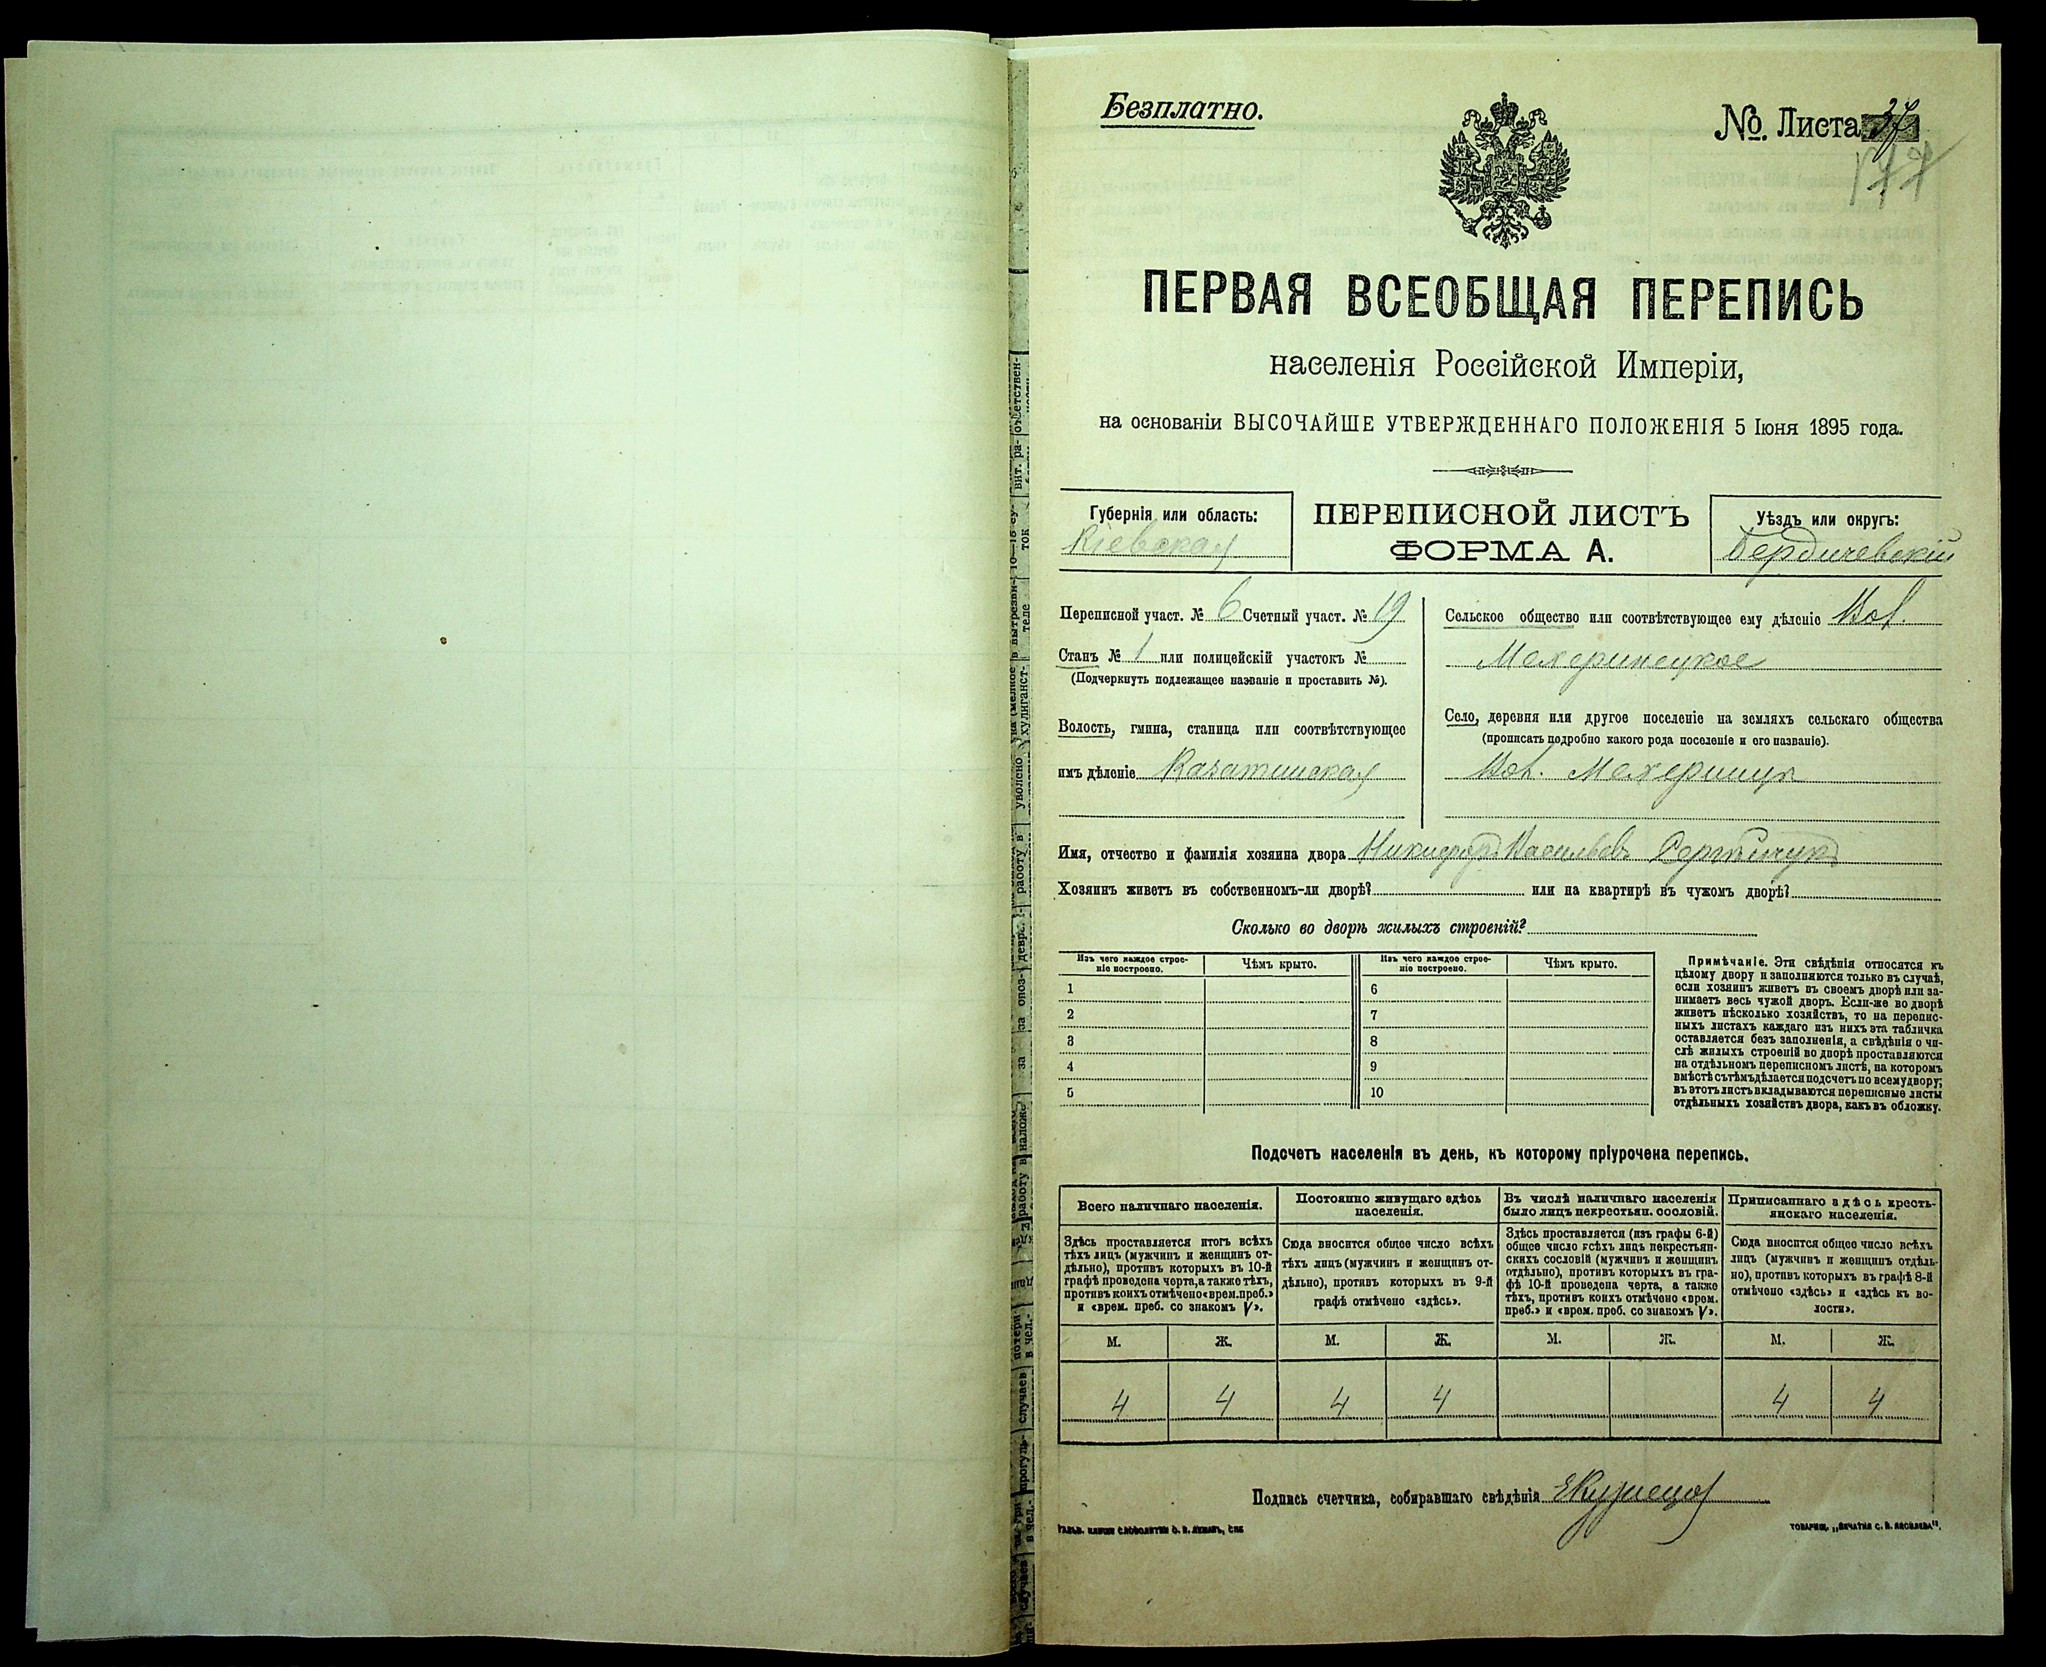 Безплатно.
№. Листа 37
177
ПЕРВАЯ ВСЕОБЩАЯ ПЕРЕПИСЬ
населенія Россійской Имперіи,
на основаніи ВЫСОЧАЙШЕ УТВЕРЖДЕННАГО ПОЛОЖЕНІЯ 5 Іюня 1895 года.
Губернія или область:
Кіевская
ПЕРЕПИСНОЙ ЛИСТЪ
ФОРМА А.
Уѣздъ или округъ:
Бердичевскій
Переписной участ. № 6 Счетный участ. № 19
Станъ № 1 или полицейскій участокъ №
(Подчеркнуть подлежащее названіе и проставить №).
Волость, гмина, станица или соотвѣтствующее
имъ дѣленіе Казатинская
Сельское общество или соотвѣтствующее ему дѣленіе
Махеринецкое
Село, деревня или другое поселеніе на земляхъ сельскаго общества
(прописать подробно какого рода поселеніе и его названіе).
Имя, отчество и фамилія хозяина двора Никифоръ Васильевъ
Хозяинъ живетъ въ собственномъ-ли дворѣ? или на квартирѣ въ чужомъ дворѣ?
Сколько во дворѣ жилыхъ строеній?
Изъ чего каждое строе-
ніе построено.
Чѣмъ крыто.
Изъ чего каждое строе-
ніе построено.
Чѣмъ крыто.
1 6
2 7
3 8
4 9
5 10
Примѣчаніе. Эти свѣдѣнія относятся къ
цѣлому двору и заполняются только въ случаѣ,
если хозяинъ живетъ въ своемъ дворѣ или за-
нимаетъ весь чужой дворъ. Если-же во дворѣ
живетъ нѣсколько хозяйствъ, то на перепис-
ныхъ листахъ каждаго изъ нихъ эта табличка
оставляется безъ заполненія, а свѣдѣнія о чи-
слѣ жилыхъ строеній во дворѣ проставляются
на отдѣльномъ переписномъ листѣ, на которомъ
вмѣстѣ съ тѣмъ дѣлается подсчетъ по всему двору;
въ этотъ листъ вкладываются переписные листы
отдѣльныхъ хозяйствъ двора, какъ въ обложку.
Подсчетъ населенія въ день, къ которому пріурочена перепись.
Всего наличнаго населенія.
Здѣсь проставляется итогъ всѣхъ
тѣхъ лицъ (мужчинъ и женщинъ от-
дѣльно), противъ которыхъ въ 10-й
графѣ проведена черта, а также тѣхъ,
противъ коихъ отмѣчено «врем. преб.»
и «врем. преб. со знакомъ V».
Постоянно живущаго здѣсь
населенія.
Сюда вносится общее число всѣхъ
тѣхъ лицъ (мужчинъ и женщинъ от-
дѣльно), противъ которыхъ въ 9-й
графѣ отмѣчено «здѣсь».
Въ числѣ наличнаго населенія
было лицъ некрестьян. сословій.
Здѣсь проставляется (изъ графы 6-й)
общее число всѣхъ лицъ некрестьян-
скихъ сословій (мужчинъ и женщинъ
отдѣльно), противъ которыхъ въ гра-
фѣ 10-й проведена черта, а также
тѣхъ, противъ коихъ отмѣчено «врем.
преб.» и «врем. преб. со знакомъ V».
Приписаннаго здѣсь кресть-
янскаго населенія.
Сюда вносится общее число всѣхъ
лицъ (мужчинъ и женщинъ отдѣль-
но), противъ которыхъ въ графѣ 8-й
отмѣчено «здѣсь» и «здѣсь къ во-
лости».
М. Ж. М. Ж. М. Ж. М. Ж.
4 4 4 4 4 4
Подпись счетчика, собиравшаго свѣдѣнія ЕКузнецов